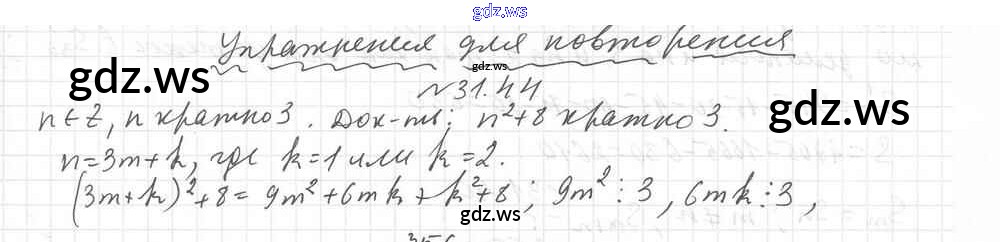 gdz.ws
Упражнения для повторения
gdz.ws
gdz.ws
№31.44
n∈Z, n кратно 3. Док-ть: n²+8 кратно 3.
gdz.ws
n=3m+k, где k=1 или k=2.
(3m+k)²+8=9m²+6mk+k²+8; 9m²⋮3, 6mk⋮3,
gdz.ws